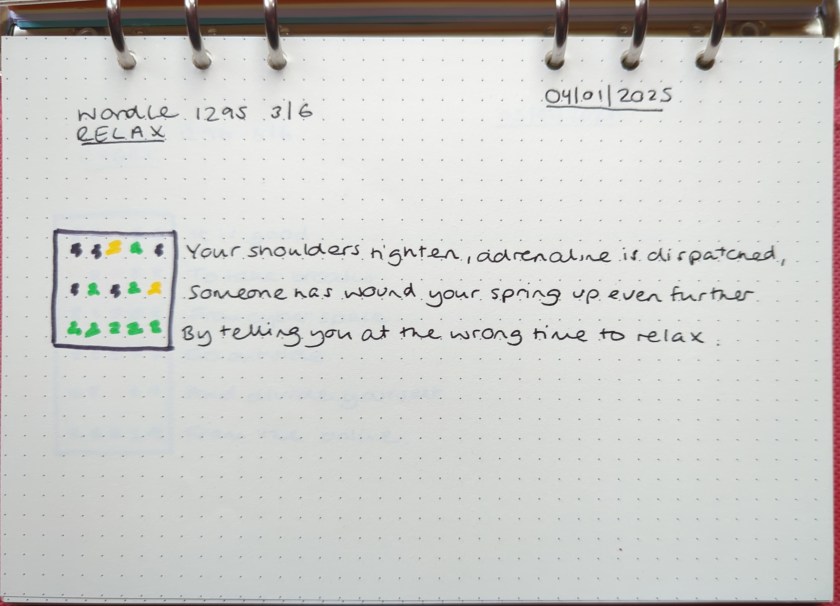 04/01/2025
Wordle 1295 3/6
RELAX
Your shoulders tighten, adrenaline is dispatched,
Someone has wound your spring up even further
By telling you at the wrong time to relax.